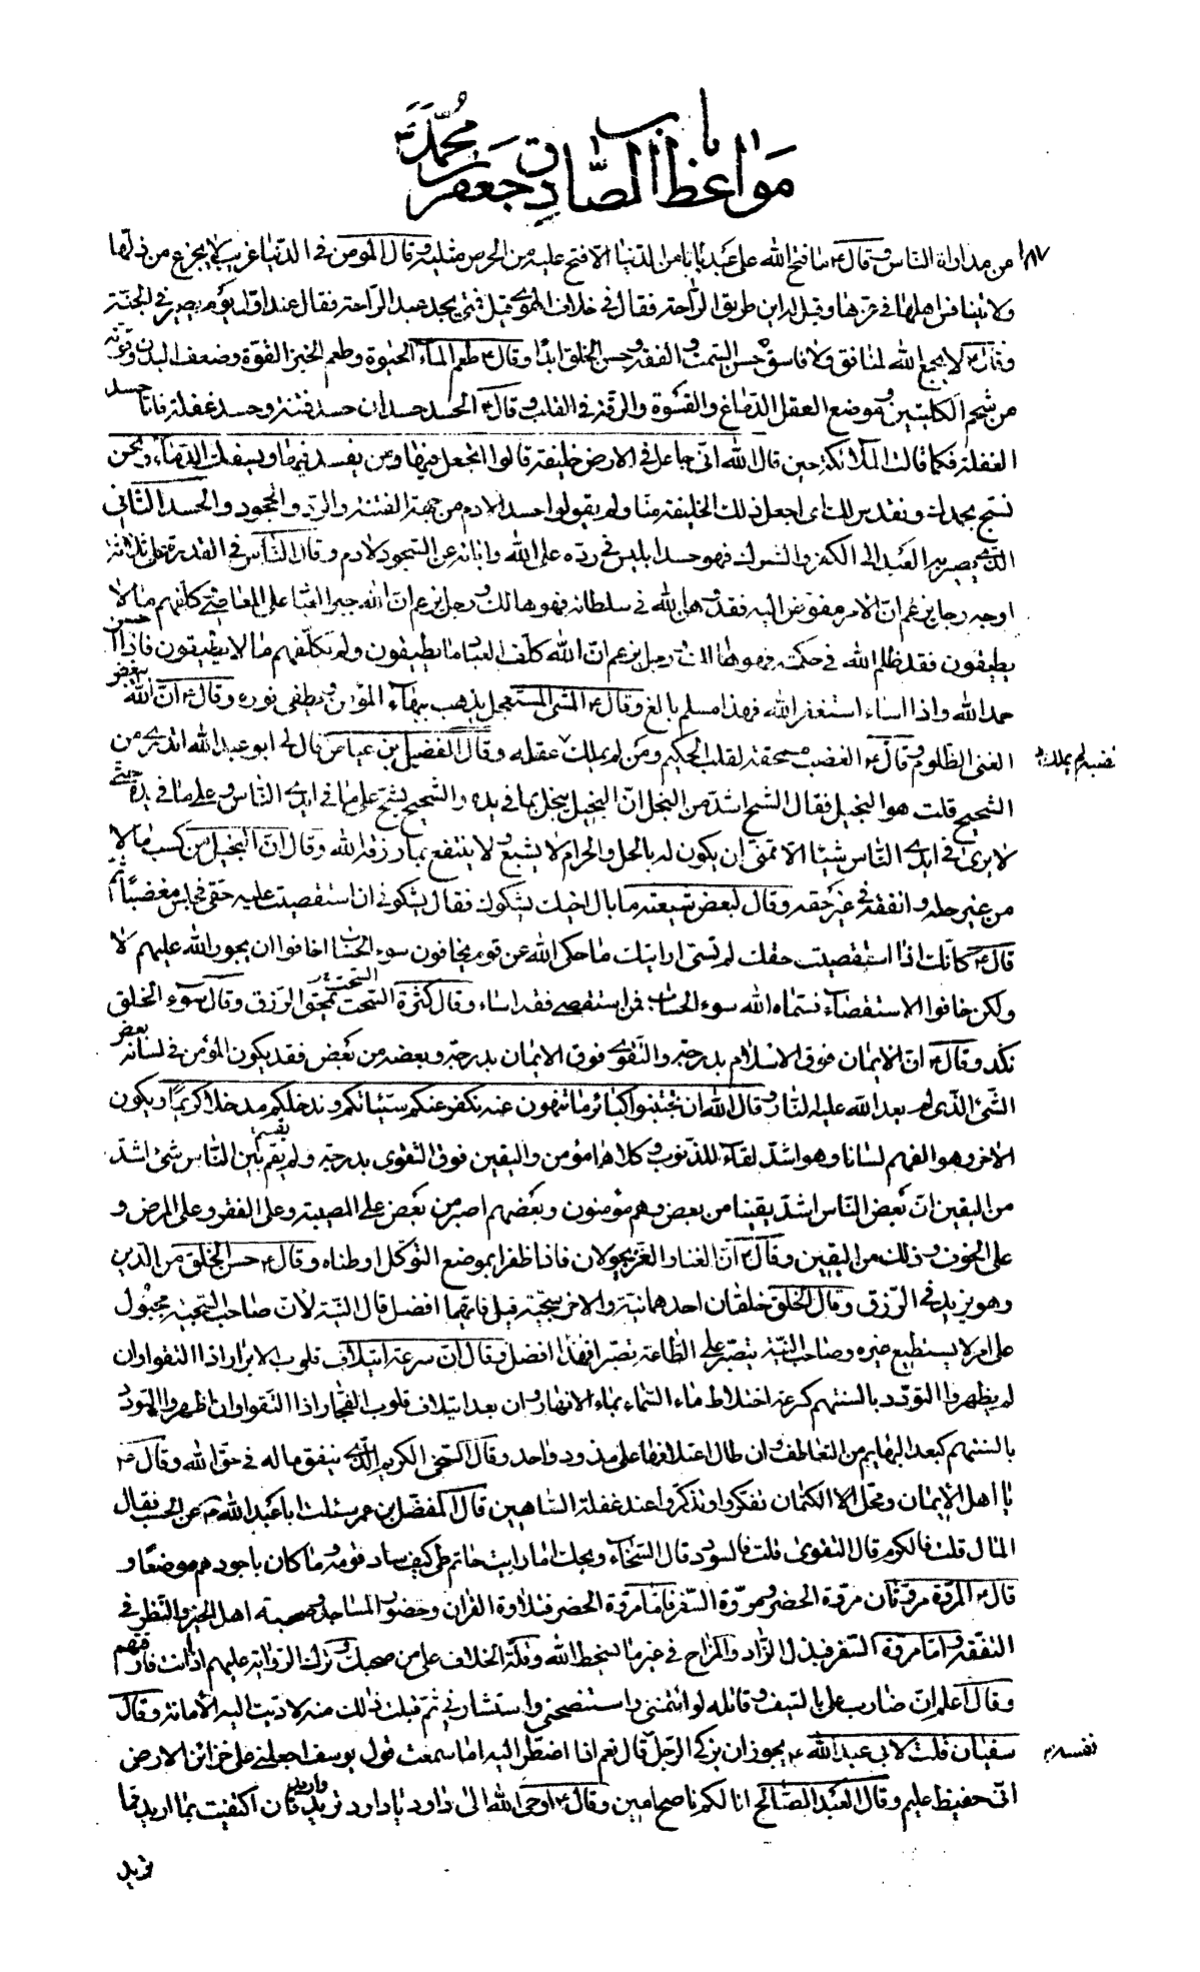 باب
مواعظ الصادق جعفر بن محمد ع
١٨٧
من مداراة الناس وقال ع ما فتح الله على عبد بابا من الدنيا الا فتح عليه من الحرص مثليه وقال المؤمن فى الدنيا غريب لا يجزع من ذلها
ولا يتنافس اهلها فى عزها وقيل له اين طريق الراحة فقال فى خلاف الهوى قيل فمتى يجد عبد الراحة فقال عند اول يوم يصير فى الجنة
وقال ع لا يجمع الله لمنافق ولا فاسق حسن السمت والفقه وحسن الخلق ابدا وقال ع طعم الماء الحيوة وطعم الخبز القوة وضعف البدن وقوته
من شحم الكليتين وموضع العقل الدماغ والقسوة والرقة فى القلب وقال ع الحسد حسدان حسد فتنة وحسد غفلة فاما حسد
الغفلة فكما قالت الملائكة حين قال الله انى جاعل فى الارض خليفة قالوا اتجعل فيها من يفسد فيها ويسفك الدماء ونحن
نسبح بحمدك ونقدس لك اى اجعل ذلك الخليفة منا ولم يقولوا حسدا لادم من جهة الفتنة والرد والجحود والحسد الثانى
الذى يصير به العبد الى الكفر والشرك فهو حسد ابليس فى رده على الله وابائه عن السجود لادم وقال الناس فى القدرة على ثلاثة
اوجه رجل يزعم ان الامر مفوض اليه فقد وهن الله فى سلطانه فهو هالك ورجل يزعم ان الله جبر العباد على المعاصى كلفهم ما لا
يطيقون فقد ظلم الله فى حكمه فهو هالك ورجل يزعم ان الله كلف العباد ما يطيقون ولم يكلفهم ما لا يطيقون فاذا احسن
حمد الله واذا اساء استغفر الله فهذا مسلم بالغ وقال ع المشى المستعجل يذهب ببهاء المؤمن ويطفى نوره وقال ع ان الله يبغض
الغنى الظلوم وقال ع الغضب ممحقة لقلب الحكيم ومن لم يملك عقله وقال الفضيل بن عياض قال لى ابو عبد الله اتدرى من
غضبه لم يملك
الشحيح قلت هو البخيل فقال الشح اشد من البخل ان البخيل يبخل بما فى يده والشحيح يشح على ما فى ايدى الناس وعلى ما فى يده حتى
لا يرى فى ايدى الناس شيئا الا تمنى ان يكون له بالحل والحرام لا يشبع ولا ينتفع بما رزقه الله وقال ان البخيل من كسب مالا
من غير حله وانفقه فى غير حقه وقال لبعض شيعته ما بال اخيك يشكوك فقال يشكونى ان استقصيت عليه حقى فجلس مغضبا ثم
قال ع كانك اذا استقصيت حقك لم تسئ ارايتك ما حكى الله عن قوم يخافون سوء الحساب اخافوا ان يجور الله عليهم لا
ولكن خافوا الاستقصاء فسماه الله سوء الحساب فمن استقصى فقد اساء وقال كثرة السحت تمحق الرزق وقال سوء الخلق
السحت
نكد وقال ع ان الايمان فوق الاسلام بدرجة والتقوى فوق الايمان بدرجة وبعضه من بعض فقد يكون المؤمن فى لسانه بعض
الشئ الذى لم يعد الله عليه النار وقال الله ان تجتنبوا كبائر ما تنهون عنه نكفر عنكم سيئاتكم وندخلكم مدخلا كريما ويكون
الاخر وهو الفهم لسانا وهو اشد لقاء للذنوب وكلاهما مؤمن واليقين فوق التقوى بدرجة ولم يقسم بين الناس شئ اشد
من اليقين ان بعض الناس اشد يقينا من بعض وهم مؤمنون وبعضهم اصبر من بعض على المصيبة وعلى الفقر وعلى المرض و
على الخوف وذلك من اليقين وقال ع ان الغنا والعز يجولان فاذا ظفرا بموضع التوكل اوطناه وقال ع حسن الخلق من الدين
وهو يزيد فى الرزق وقال الخلق خلقان احدهما نية والاخر سجية قيل فايهما افضل قال النية لان صاحب السجية مجبول
على امر لا يستطيع غيره وصاحب النية يتصبر على الطاعة تصبرا فهذا افضل وقال ان سرعة ايتلاف قلوب الابرار اذا التقوا وان
لم يظهروا التودد بالسنتهم كسرعة اختلاط ماء السماء بماء الانهار وان بعد ايتلاف قلوب الفجار اذا التقوا وان اظهروا التودد
بالسنتهم كبعد البهايم من التعاطف وان طال اعتلافها على مذود واحد وقال السخى الكريم الذى ينفق ماله فى حق الله وقال ع
يا اهل الايمان ومحل الكتمان تفكروا وتذكروا عند غفلة الساهين قال المفضل بن عمر سئلت ابا عبد الله ع عن الحسب فقال
المال قلت فالكرم قال التقوى قلت فالسودد قال السخاء ويحك اما رايت حاتم طى كيف ساد قومه وما كان باجودهم موضعا و
قال ع المروة مروتان مروة الحضر ومروة السفر فاما مروة الحضر فتلاوة القران وحضور المساجد وصحبة اهل الخير والنظر فى
التفقه واما مروة السفر فبذل الزاد والمزاح فى غير ما يسخط الله وقلة الخلاف على من صحبك وترك الرواية عليهم اذا انت فارقتهم
وقال اعلم ان ضارب على بالسيف وقاتله لو ائتمننى واستنصحنى واستشارنى ثم قبلت ذلك منه لاديت اليه الامانة وقال
سفيان قلت لابى عبد الله ع يجوز ان يزكى الرجل قال نعم اذا اضطر اليه اما سمعت قول يوسف اجعلنى على خزائن الارض
نفسه
انى حفيظ عليم وقال العبد الصالح انا لكم ناصح امين وقال ع اوحى الله الى داود يا داود تريد واريد فان اكتفيت بما اريد مما
تريد